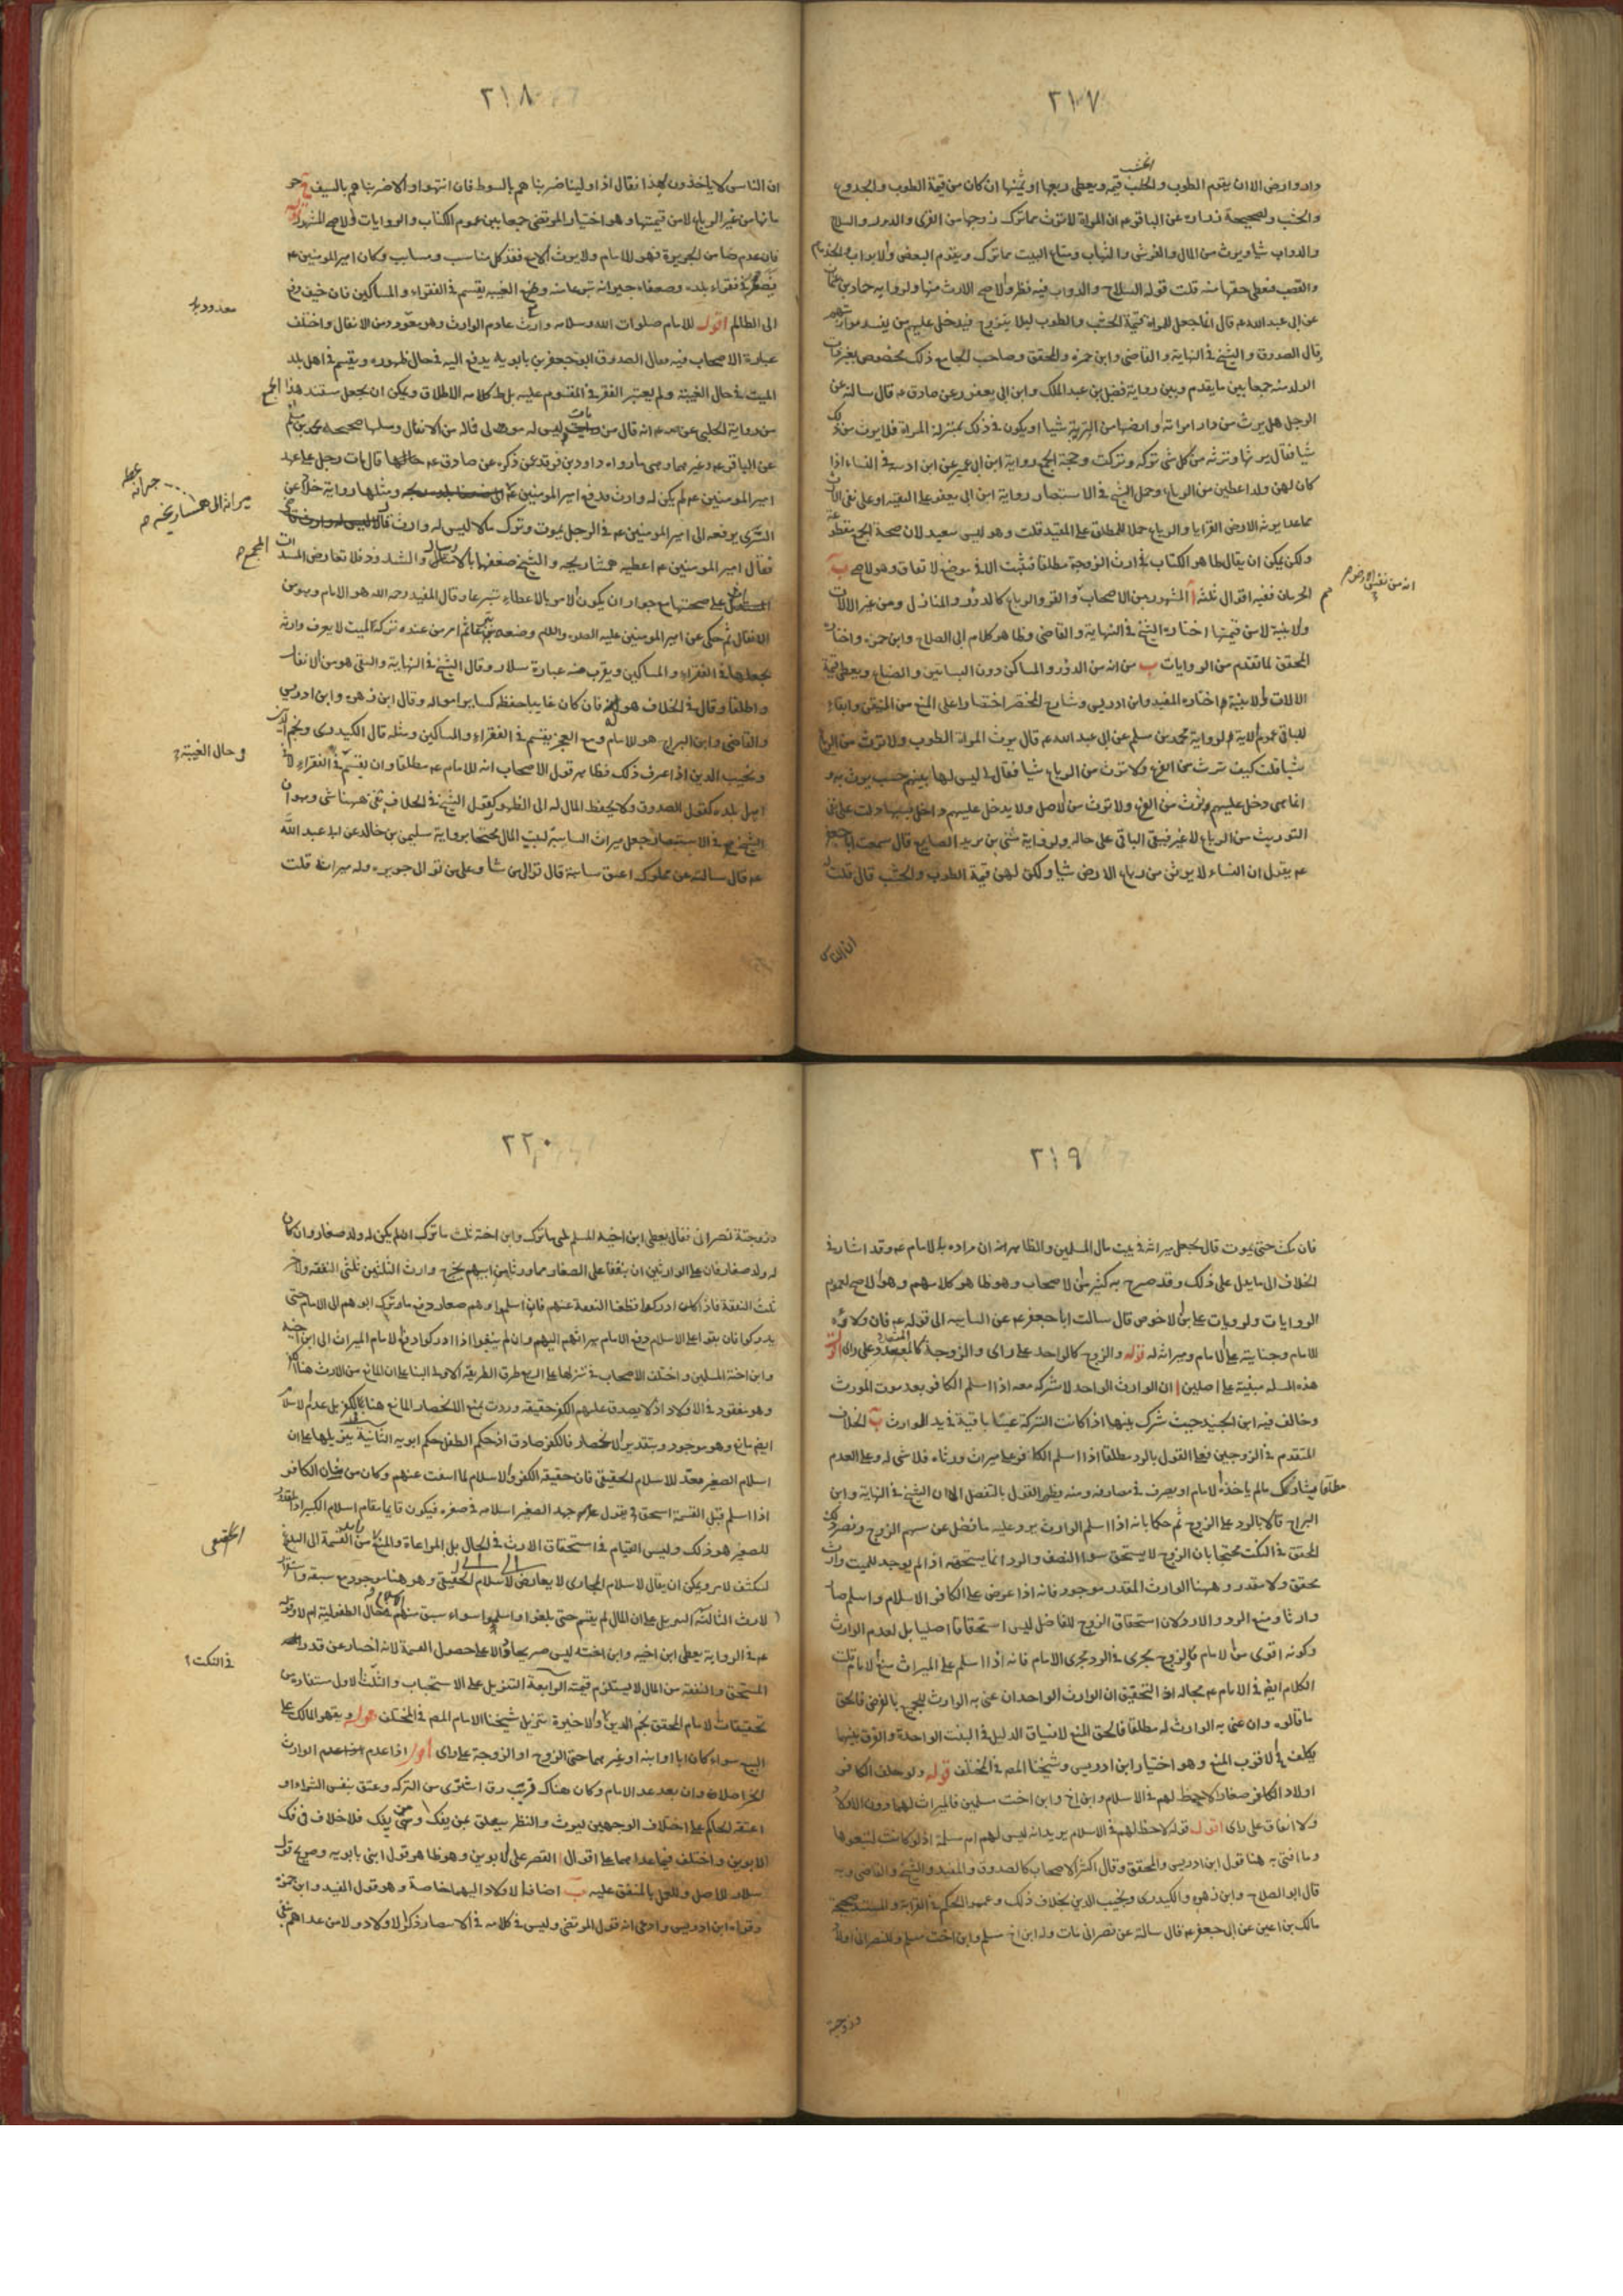 ٢١٧
الخشب
وادوارض الا ان يقوم الطوب والخشب قيمة ويعطى ربعها او ثمنها ان كان من قيمة الطوب والجذوع
والخشب ولصحيحة زرارة عن الباقر عم ان المراة لا ترث مما ترك زوجها من القرى والدور والسلاح
والدواب شيا ويرث من المال والفرش والثياب ومتاع البيت مما ترك ويقوم البعض والابواب والجذوع
والقصب فتعطى حقها منه قلت قوله السلاح والدواب فيه نظر والاصح الارث منها ولرواية حماد بن عثمان
عن ابى عبد الله عم قال انما جعل للمراة قيمة الخشب والطوب ليلا يتزوج فيدخل عليهم من يفسد مواريثهم
وقال الصدوق والشيخ فى النهاية والقاضى وابن حمزة والمحقق وصاحب الجامع ذلك مخصوص بغير ذات
الولد منه جمعا بين ما يقدم وبين رواية فضل بن عبد الملك وابن ابى يعفور عن صادق عم قال سالته عن
الرجل هل يرث من دار امراته او ارضها من التربة شيا او يكون فى ذلك بمنزلة المراة فلا يرث من ذلك
شيا فقال يرثها وترثه من كل شى تركه وتركت وحجة الجمع رواية ابن ابى عمير عن ابن اذينة فى النساء اذا
كان لهن ولد اعطين من الرباع وحمل الشيخ فى الاستبصار رواية ابن ابى يعفور على التقية او على نفى الارث
مما عدا تربة الارض القرايا والرباع حملا للمطلق على المقيد قلت وهو ليس سعيد لان صحة الجمع
ولكن يمكن ان يقال ظاهر الكتاب فى ارث الزوجة مطلقا فثبت الا فى موضع الاتفاق وهو الاصح ب
الحرمان ففيه اقوال ثلثة ا المشهور بين الاصحاب والقرى والرباع كالدور والمنازل ومن عين الالات
انه من نفس الارض
والابنية لا من قيمتها اختاره الشيخ فى النهاية والقاضى وظاهر كلام ابى الصلاح وابن حمزة واختاره
المحقق لما تقدم من الروايات ب من انه من الدور والمساكن دون البساتين والضياع ويعطى قيمة
الالات والابنية واختاره المفيد وابن ادريس وشارح المختصر اختصارا على المنع من المتيقن وابقاء
للباقى عموم الاية ولرواية محمد بن مسلم عن ابى عبد الله عم قال يرث المراة الطوب ولا ترث من الرباع
شيا قلت كيف ترث من الفرع ولا ترث من الرباع شيا فقال لى ليس لها بينهم حسب يرث به و
انما هى دخل عليهم فترث من الفرع ولا ترث من الاصل ولا يدخل عليهم داخل بسببها دلت على نفى
التوريث من الرباع لا غير فيبقى الباقى على حاله ولرواية مثنى بن يزيد الصايغ قال سمعت ابا جعفر
عم يقول ان النساء لا يرثن من رباع الارض شيا ولكن لهن قيمة الطوب والخشب قال قلت له
ان الناس
٢١٨
ان الناس لا ياخذون بهذا فقال اذا ولينا ضربناهم بالسوط فان انتهوا والا ضربناهم بالسيف
مانها من عين الرباع لا من قيمتها وهو اختيار المرتضى جمعا بين عموم الكتاب والروايات والاصح المشهور قوله
فان عدم ضامن الجريرة فهو للامام ولا يرث الا مع فقد كل مناسب ومسابب وكان امير المؤمنين عم
يضعه فى فقراء بلده وضعفاء جيرانه تبرعا منه ومع الغيبة يقسم فى الفقراء والمساكين فان خيف دفع
معدود
الى الظالم اقول للامام صلوات الله وسلامه وارث عادم الوارث وهو معدود من الانفال واختلف
عبارة الاصحاب فيه فقال الصدوق ابو جعفر بن بابويه يدفع اليه فى حال ظهوره ويقسم فى اهل بلد
الميت فى حال الغيبة ولم يعتبر الفقر فى المقسوم عليه بل ظاهر كلامه الاطلاق ويمكن ان يجعل مستند هذا الجمع
من رواية الحلبى عن ص عم انه قال من مات وليس له مولى فماله من الانفال ومثلها صحيحة محمد بن مسلم
عن الباقر عم وغيرهما وبين ما رواه داود بن فرقد عمن ذكره عن صادق عم قال مات رجل على عهد
امير المؤمنين عم لم يكن له وارث فدفع امير المؤمنين عم ومثلها رواية خلاد عن
ميراثه الى همشاريجه
السرى يرفعه الى امير المؤمنين عم فى الرجل يموت وترك مالا ليس له وارث قال
فقال امير المؤمنين عم اعطيه همشاريجه والشيخ ضعفها بالارسال والشذوذ فلا تعارض المسندات
على صحتها مع جواز ان يكون الامر بالاعطاء تبرعا وقال المفيد رحمه الله هو للامام وهو من
الانفال ثم حكى عن امير المؤمنين عليه الصلوة والسلام وضعه ثم قال من مات وليس من عنده تركة الميت لا يعرف وارثه
يجعلها فى الفقراء والمساكين ويقرب منه عبارة سلار وقال الشيخ فى النهاية والتقى هو من الانفال
واطلقا وقال فى الخلاف هو له فان كان غايبا حفظ كساير امواله وقال ابن زهرة وابن ادريس
والقاضى وابن البراج هو للامام ومع العجز يقسم فى الفقراء والمساكين ومثله قال الكيدرى ونجم الدين
و حال الغيبة
ونجيب الدين اذا عرف ذلك فظاهر قول الاصحاب انه للامام عم مطلقا وان يقسم فى الفقراء لا فى
اهل بلده كقول الصدوق ولا يحفظ المال له الى الظهور كقول الشيخ فى الخلاف بقى ههنا شى وهو ان
الشيخ فى الاستبصار جعل ميراث السايبة لبيت المال محتجا برواية سليمن بن خالد عن ابى عبد الله
عم قال سالته عن مملوك اعتق سايبة قال توالى من شاء وعلى من توالى جريره وله ميراثه قلت
٢١٩
فان مكث حتى يموت قال يجعل ميراثه فى بيت مال المسلمين والظاهر انه ان مراده به الامام عم وقد اشار فى
الخلاف الى ما يدل على ذلك وقد صرح به كثير من الاصحاب وهو ظاهر كلامهم وهو الاصح لعموم
الروايات ولرواية عمار بن ابى الاحوص قال سالت ابا جعفر عم عن السايبة الى قوله عم فان ولاؤه
للامام وجنايته على الامام وميراثه له قوله والزوج كالواحد على راى والزوجة كالمتعدد على راى اقول
هذه المسلة مبنية على اصلين ا ان الوارث الواحد لا شركة معه اذا اسلم الكافر بعد موت المورث
وخالف فيه ابن الجنيد حيث شرك بينهما اذا كانت التركة عينا باقية فى يد الوارث ب الخلاف
المتقدم فى الزوجين فعلى القول بالرد مطلقا اذا اسلم الكافر على ميراث ورثاه فلا شى له وعلى العدم
مطلقا يشارك ما لم ياخذه الامام او يصرف فى مصارفه ومنه يظهر القول بالتفصيل الا ان الشيخ فى النهاية وابن
البراج قالا بالرد على الزوج ثم حكما بانه اذا اسلم الوارث يرد عليه ما فضل عن سهم الزوج ونصر ذلك
المحقق فى النكت محتجا بان الزوج لا يستحق سوا النصف والرد انما يستحقه اذا لم يوجد للميت وارث
محقق ولا مقدر وههنا الوارث المقدر موجود فانه اذا عرض على الكافر الاسلام واسلم صار
وارثا ومنع الرد والاولان استحقاق الزوج للفاضل ليس استحقاقا اصليا بل لعدم الوارث
وكونه اقوى من الامام فالزوج يجرى فى الرد مجرى الامام فانه اذا اسلم على الميراث منع الامام قلت
الكلام ايضا فى الامام عم بحاله اذا التحقيق ان الوارث الواحد ان عنى به الوارث للجميع بالفرض فالحق
ما قالوه وان عنى به الوارث له مطلقا فالحق المنع لانسياق الدليل فى البنت الواحدة والفرق بينهما
يكلف فى الاقرب المنع وهو اختيار ابن ادريس وشيخنا المص فى المختلف قوله ولو خلف الكافر
اولاد الكافر صغارا لاحظ لهم فى الاسلام وابن اخ وابن اخت مسلمين فالميراث لهما دون الاولاد
ولا انفاق على راى اقول قوله لاحظ لهم فى الاسلام يريد انه ليس لهم ام مسلمة اذ لو كانت لتبعوها
وما افتى به هنا قول ابن ادريس والمحقق وقال اكثر الاصحاب كالصدوق والمفيد والشيخ والقاضى وبه
قال ابو الصلاح وابن زهره والكيدرى ونجيب الدين بخلاف ذلك وعمموا الحكم فى القرابة والمستند صحيحة
مالك بن اعين عن ابى جعفر عم قال سالته عن نصرانى مات وله ابن اخ مسلم وابن اخت مسلم وللنصرانى اولاد
وزوجة
٢٢٠
وزوجة نصرانى فقال يعطى ابن اخيه المسلم ثلثى ما ترك وابن اخته ثلث ما ترك ان لم يكن له ولد صغار وان كان
له ولد صغار فان على الوارثين ان ينفقا على الصغار مما ورثا من ابيهم يخرج وارث الثلثين ثلثى النفقة والاخر
ثلث النفقة فاذا كان ادركوا قطعا النفقة عنهم فان اسلموا وهم صغار دفع ما ترك ابوهم الى الامام حتى
يدركوا فان بقوا على الاسلام دفع الامام ميراثهم اليهم وان لم يبقوا اذا ادركوا دفع الامام الميراث الى ابن اخيه
وابن اخته المسلمين واختلف الاصحاب فى تنزيلها على اربع طرق الطريقة الاولى البنا على ان المانع من الارث هنا الكفر
وهو مفقود فى الاولاد اذ لا يصدق عليهم الكفر حقيقة وردت بمنع الانحصار المانع هنا بالكفر بل عدم الاسلام
ايضا مانع وهو موجود وبتقدير الانحصار فالكفر صادق اذ حكم الطفل حكم ابويه الثانية تنزيلها على ان
اسلام الصغير معد للاسلام الحقيقى فان حقيقة الكفر والاسلام لما انتفت عنهم وكان من شان الكافر
اذا اسلم قبل القسمة استحق فى يقول جهد الصغير اسلامه فى صغره فيكون قايما مقام اسلام الكبير اذ المقدر
الحقيقى
للصغير هو ذلك وليس القيام فى استحقاق الارث فى الحال بل المراعاة والمنع من القسمة الى البلوغ
لينكشف الامر ويمكن ان يقال الاسلام المجازى لا يعارض الاسلام الحقيقى وهو هنا موجود مع سبقه واستقرار
الارث الثالثة التنزيل على ان المال لم يقسم حتى بلغوا واسلموا سواء سبق منهم حال الطفولية ام لا وقوله
عم فى الرواية يعطى ابن اخيه وابن اخته ليس صريحا على حصول القسمة لانه اخبار عن قدر
فى النكت
المستحق والنفقة من المال لا يستلزم قسمته الرابعة التنزيل على الاستحباب والثلث الاول مستفاد من
تحقيقات الامام المحقق نجم الدين والاخيرة تنزيل شيخنا الامام المص فى المختلف قوله ويقهر المالك على
البيع سواء كان ابا او ابنه او غيرهما حتى الزوج او الزوجة على راى اقول اذا عدم الوارث
الحر اصلا وان بعد عدا الامام وكان هناك قريب رق اشترى من التركة وعتق بنفس الشراء او
اعتقه الحاكم على اختلاف الوجهين ليرث والنظر يتعلق عمن يفك ومتى يفك فلا خلاف فى فك
الابوين واختلف فيما عداهما على اقوال ا القصر على الابوين وهو ظاهر قول ابنى بابويه وصريح قول
سلار للاصل وللعمل بالمتفق عليه ب اضافة الاولاد اليهما خاصة وهو قول المفيد وابن حمزة
وقواه ابن ادريس وادعى انه قول المرتضى وليس فى كلامه فى الانتصار ذكر الاولاد ولا من عداهم شى